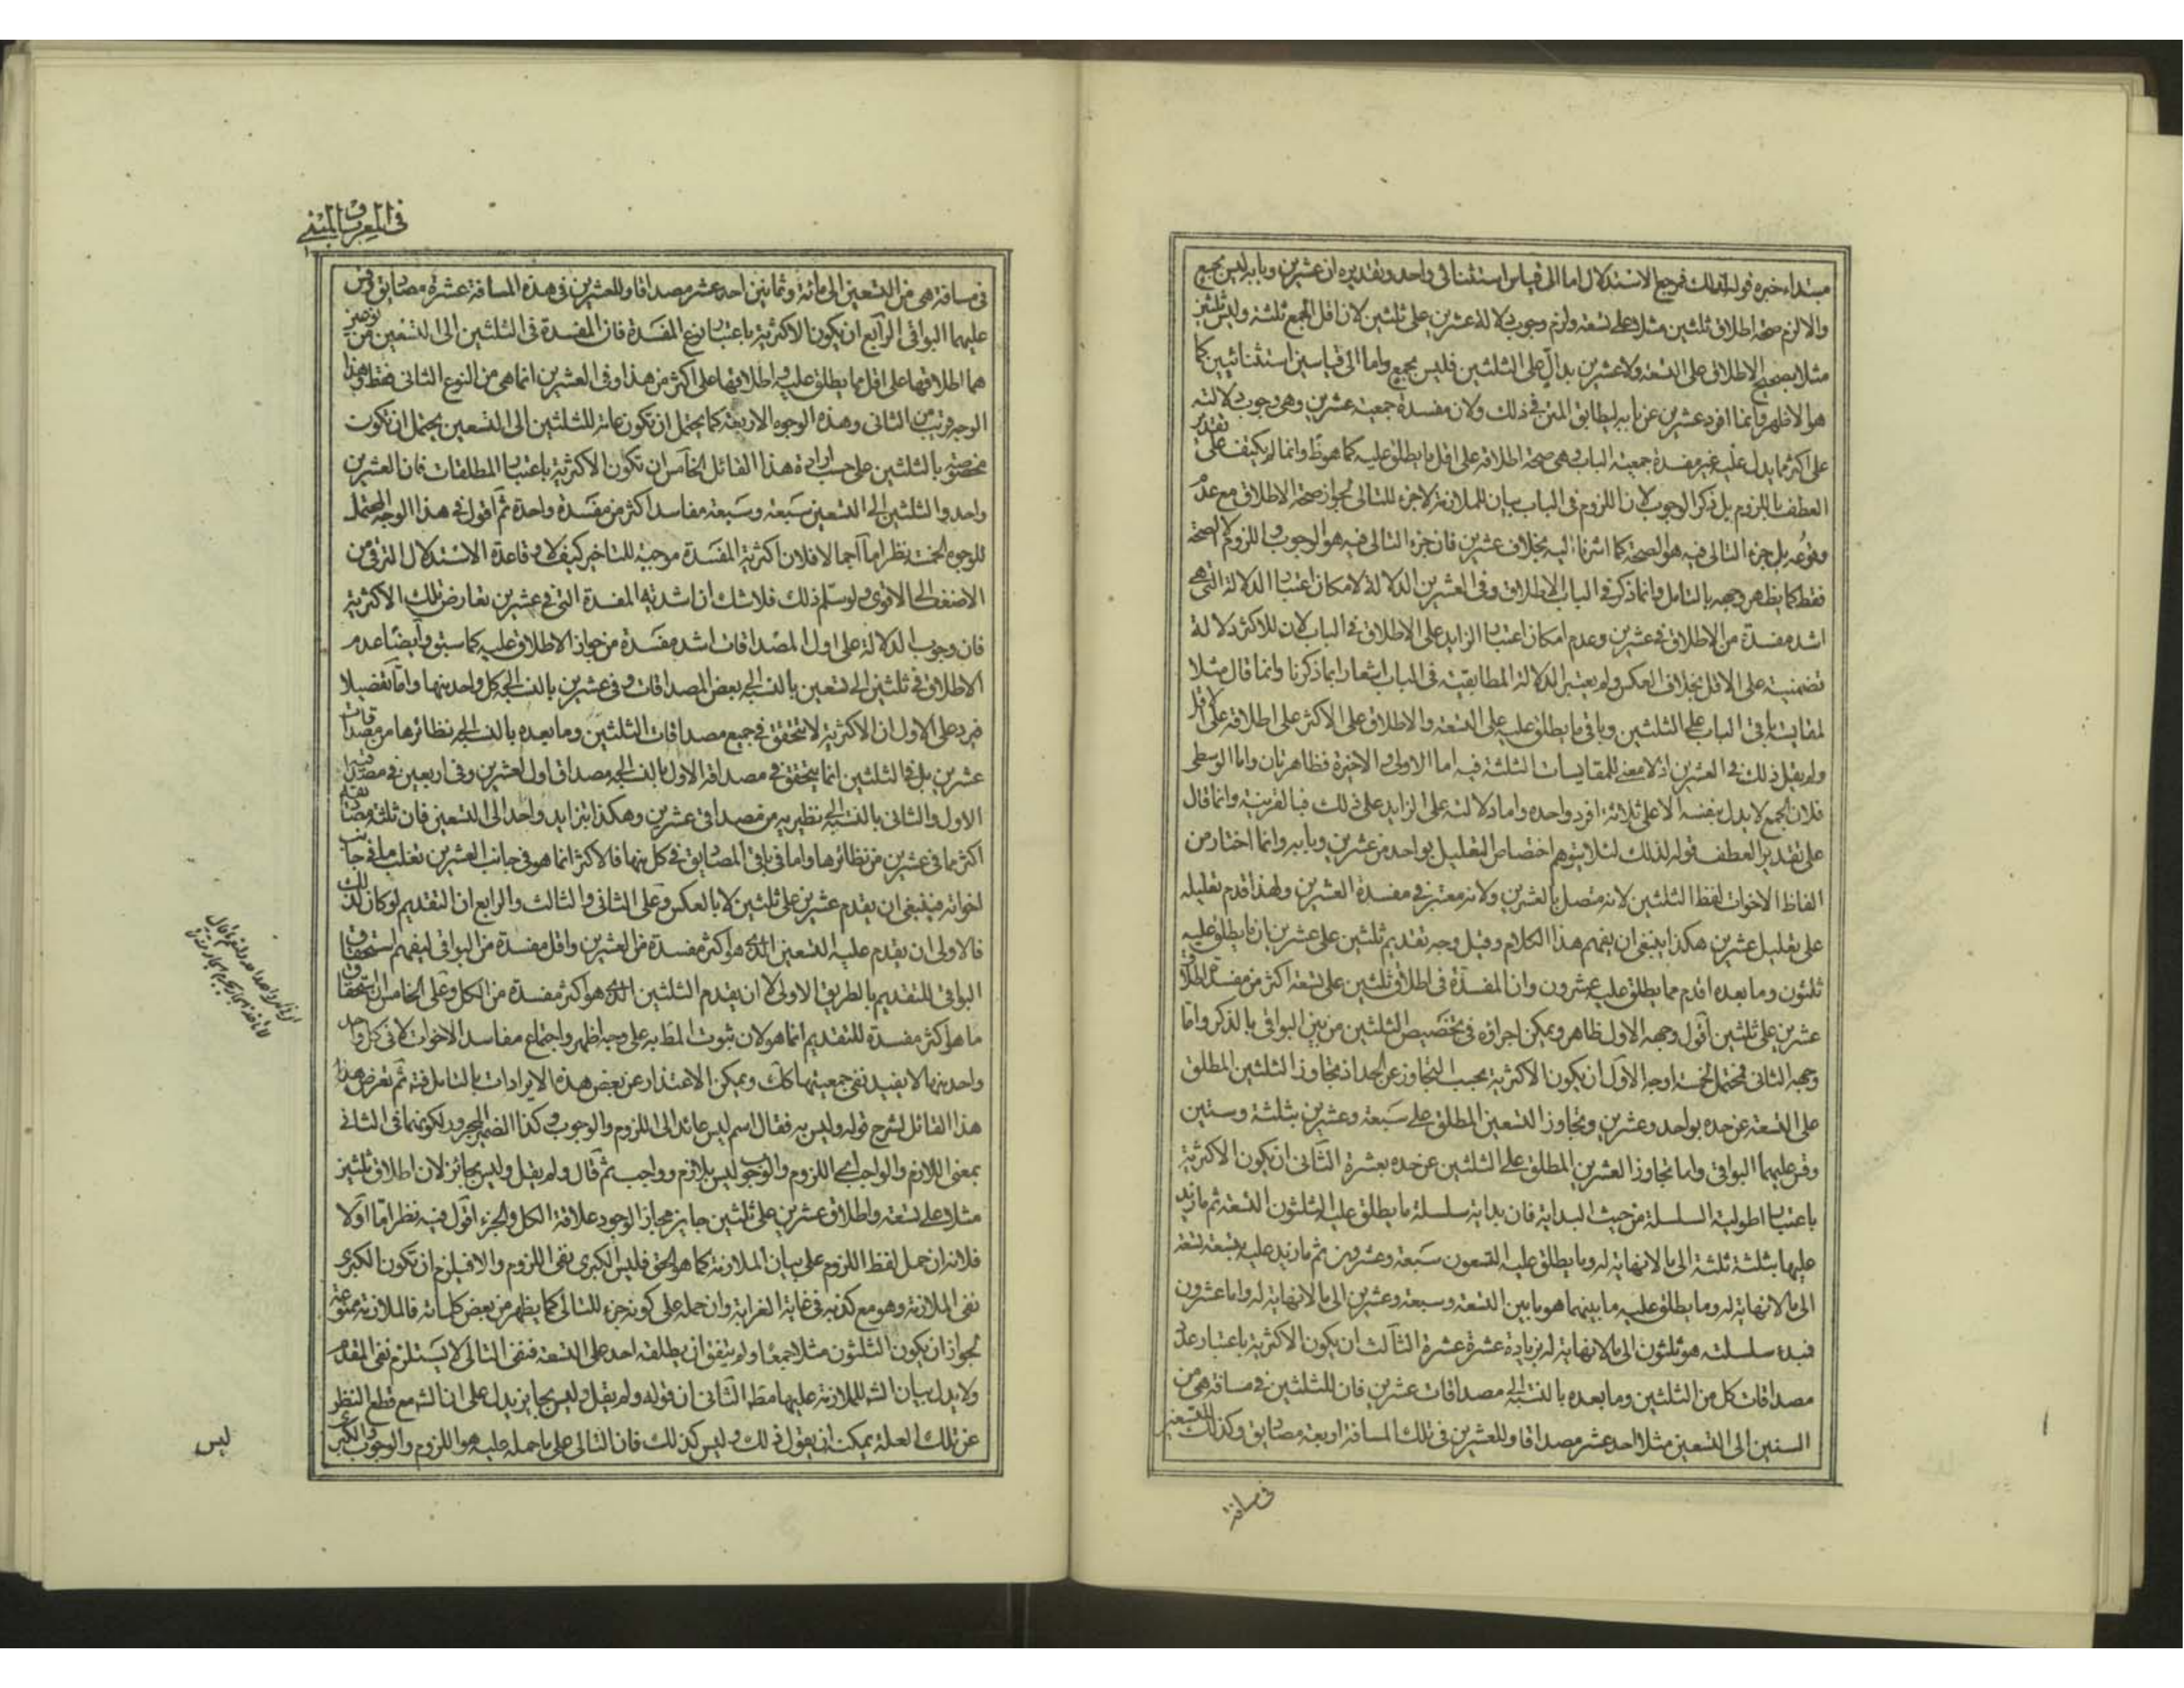 مبتداء خبره قوله لذلك فمرجع الاستدلال اما الى قياس استثنائى واحد وتقديره ان عشرين وبابه ليس بجمع
والا لزم صحة اطلاق ثلثين مثلا على تسعة ولزم وجوب دلالة عشرين على ثلثين لان اقل الجمع ثلثة وليس ثلثين
مثلا بصحيح الاطلاق على التسعة ولا عشرين بدال على الثلثين فليس بجمع واما الى قياسين استثنائيين كما
هو الاظهر وانما افرد عشرين عن بابه ليطابق المتن فى ذلك ولان مفسدة جمعية عشرين وهى وجوب دلالته
على اكثر مما يدل عليه غير مفسدة جمعية الباب وهى صحة اطلاقه على اقل ما يطلق عليه كما هو ظ وانما لم يكتف على تقدير
العطف باللزوم بل ذكر الوجوب لان اللزوم فى الباب بيان للملازمة لا جزء للتالى لجواز صحة الاطلاق مع عدم
وقوعه بل جزء التالى فيه هو الصحة كما اشرنا اليه بخلاف عشرين فان جزء التالى فيه هو الوجوب واللزوم لا الصحة
فقط كما يظهر وجهه بالتامل وانما ذكر فى الباب الاطلاق وفى العشرين الدلالة لامكان اعتبار الدلالة التى هى
اشد مفسدة من الاطلاق فى عشرين وعدم امكان اعتبار الزايد على الاطلاق فى الباب لان للاكثر دلالة
تضمنية على الاقل بخلاف العكس ولم يعتبر الدلالة المطابقية فى الباب اشعارا بما ذكرنا وانما قال مثلا
لمقايسة باقى الباب على الثلثين وباقى ما يطلق عليه على التسعة والاطلاق على الاكثر على اطلاقه على الاقل
ولم يقل ذلك فى العشرين اذ لا معنى للمقايسات الثلثة فيه اما الاولى والاخيرة فظاهرتان واما الوسطى
فلان الجمع لا يدل بنفسه الا على ثلاثة افراد واحده واما دلالته على الزايد على ذلك فبالقرينة وانما قال
على تقدير العطف قوله لذلك لئلا يتوهم اختصاص التعليل بواحد من عشرين وبابه وانما اختار من
الفاظ الاخوات لفظ الثلثين لانه متصل بالعشرين ولانه معتبر فى مفسدة العشرين ولهذا قدم تعليله
على تعليل عشرين هكذا ينبغى ان يفهم هذا الكلام وقيل وجه تقديم ثلثين على عشرين بان ما يطلق عليه
ثلثون وما بعده اقدم مما يطلق عليه عشرون وان المفسدة فى اطلاق ثلثين على تسعة اكثر من مفسدة اطلاق
عشرين على ثلثين اقول وجهه الاول ظاهر ويمكن اجراؤه فى تخصيص الثلثين من بين البواقى بالذكر واما
وجهه الثانى فمحتمل لخمسة اوجه الاول ان يكون الاكثرية بحسب التجاوز عن الحد اذ تجاوز الثلثين المطلق
على التسعة عن حده بواحد وعشرين وتجاوز التسعين المطلق على سبعة وعشرين بثلثة وستين
وقس عليهما البواقى واما تجاوز العشرين المطلق على الثلثين عن حده بعشرة الثانى ان يكون الاكثرية
باعتبار اطولية السلسلة من حيث البداية فان بداية سلسلة ما يطلق عليه الثلثون التسعة ثم ما زيد
عليها بثلثة ثلثة الى ما لا نهاية له وما يطلق عليه التسعون سبعة وعشرون ثم ما زيد عليه بتسعة تسعة
الى ما لا نهاية له وما يطلق عليه ما بينهما هو ما بين التسعة وسبعة وعشرين الى ما لا نهاية له واما عشرون
فبدء سلسلته هو ثلثون الى ما لا نهاية له بزيادة عشرة عشرة الثالث ان يكون الاكثرية باعتبار عدد
مصداقات كل من الثلثين وما بعده بالنسبة الى مصداقات عشرين فان للثلثين فى مسافة هى من
الستين الى التسعين مثلا احد عشر مصداقا وللعشرين فى تلك المسافة اربعة مصاديق وكذلك للتسعين
فى مسافة
فى المعرب والمبنى
فى مسافة هى من التسعين الى مائة وثمانين احد عشر مصداقا وللعشرين فى هذه المسافة عشرة مصاديق وقس
عليهما البواقى الرابع ان يكون الاكثرية باعتبار نوع المفسدة فان المفسدة فى الثلثين الى التسعين من نوعين
هما اطلاقها على اقل مما يطلق عليه واطلاقها على اكثر من هذا وفى العشرين انما هى من النوع الثانى فقط وهذا
الوجه قريب من الثانى وهذه الوجوه الاربعة كما يحتمل ان تكون عامة للثلثين الى التسعين يحتمل ان تكون
مخصوصة بالثلثين على حسب ارادة هذا القائل الخامس ان تكون الاكثرية باعتبار المطلقات فان العشرين
واحد والثلثين الى التسعين سبعة وسبعة مفاسد اكثر من مفسدة واحدة ثم اقول فى هذا الوجه المحتمل
للوجوه الخمسة نظر اما اجمالا فلان اكثرية المفسدة موجبة للتاخير كيف لا وقاعدة الاستدلال الترقى من
الاضعف الى الاقوى ولو سلم ذلك فلا شك ان اشدية المفسدة التى فى عشرين تعارض تلك الاكثرية
فان وجوب الدلالة على اول المصداقات اشد مفسدة من جواز الاطلاق عليه كما سبق وايضا عدم
الاطلاق فى ثلثين الى تسعين بالنسبة الى بعض المصداقات وفى عشرين بالنسبة الى كل واحد منها واما تفصيلا
فيرد على الاول ان الاكثرية لا تتحقق فى جميع مصداقات الثلثين وما بعده بالنسبة الى نظائرها من مصداقات
عشرين بل فى الثلثين انما يتحقق فى مصداقه الاول بالنسبة الى مصداق اول العشرين وفى اربعين فى مصداقيه
الاول والثانى بالنسبة الى نظيريه من مصداقى عشرين وهكذا بتزايد واحد الى التسعين فان ثلثة مصاديقه
اكثر مما فى عشرين من نظائرها واما فى باقى المصاديق فى كل منها فالاكثر انما هو فى جانب العشرين تغلب ما فى جانب
اخواته فينبغى ان يقدم عشرين على ثلثين لا بالعكس وعلى الثانى والثالث والرابع ان التقديم لو كان لذلك
فالاولى ان يقدم عليه التسعين الذى هو اكثر مفسدة من العشرين واقل مفسدة من البواقى ليفهم استحقاق
البواقى للتقديم بالطريق الاولى لا ان يقدم الثلثين الذى هو اكثر مفسدة من الكل وعلى الخامس ان استحقاق
ما هو اكثر مفسدة للتقديم انما هو لان ثبوت المط به على وجه اظهر واجتماع مفاسد الاخوات لا فى كل واحد
واحد منها لا يفيد نفى جمعيتها كك ويمكن الاعتذار عن بعض هذه الايرادات بالتامل فته ثم تعرض هذا
هذا القائل لشرح قوله وليس به فقال اسم ليس عائد الى اللزوم والوجوب وكذا الضمير المجرور لكونهما فى الثانى
بمعنى اللازم والواجب اى اللزوم والوجوب ليس بلازم وواجب ثم قال ولم يقل وليس بجائز لان اطلاق ثلثين
مثلا على تسعة واطلاق عشرين على ثلثين جايز مجازا لوجود علاقة الكل والجزء اقول فيه نظر اما اولا
فلانه ان حمل لفظ اللزوم على بيان الملازمة كما هو الحق فليس الكبرى نفى اللزوم والا فيلزم ان تكون الكبرى
نفى الملازمة وهو مع كذبه فى غاية الغرابة وان حمله على كونه جزء للتالى كما يظهر من بعض كلماته فالملازمة ممنوعة
لجواز ان يكون الثلثون مثلا جمعا ولم يتفق ان يطلقه احد على التسعة فنفى التالى لا يستلزم نفى المقدم
ولا يدل بيان الشه للملازمة عليها مط الثانى ان قوله ولم يقل وليس بجايز يدل على ان الشه مع قطع النظر
عن تلك العلة يمكن ان يقول ذلك وليس كذلك فان التالى على ما حمله عليه هو اللزوم والوجوب والكبرى
ليس